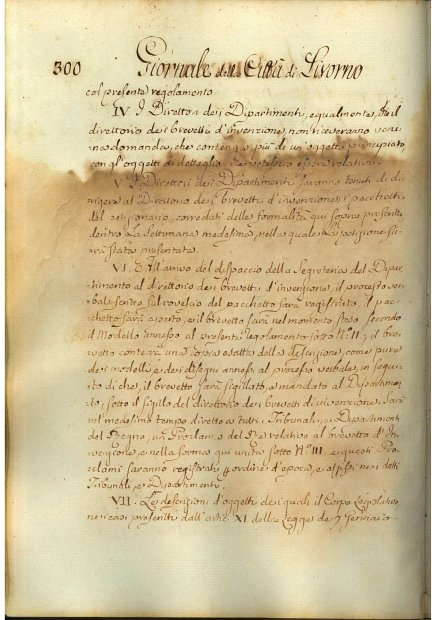 300 Giornale della Città di Livorno
col presente regolamento
IV. I Direttori dei Dipartimenti, equalmente, che il
direttorio dei brevetti d'invenzione, non riceveranno veru
na domanda, che contenga più di un'oggetto principale
con gl'oggetti di dettaglio, che potessero esservi relativi.
V. I Direttori dei Dipartimenti saranno tenuti di di
rigere al Direttorio dei brevetti d'invenzione i pacchetti
del petizionario, corredati delle formalità qui sopra prescritte
dentro La Settimana medesima, nella quale la petizione sa
rà stata presentata.
VI. All'arrivo del dispaccio della Segreteria del Dipar
timento al direttorio dei brevetti d'invenzione, il processo ver
bale scritto sul rovescio del pacchetto sarà registrato il pac
chetto sarà aperto, e il brevetto sarà nel momento steso secondo
il Modello annesso al presente Regolamento sotto N° II; il bre
vetto conterrà una copia esatta della descrizione, come pure
dei modelli e dei disegni annessi al processo verbale, in segui
to di che, il brevetto sarà sigillato, e mandato al Dipartimen
to, sotto il sigillo del direttorio dei brevetti d'invenzione. Sarà
nel medesimo tempo diretto a tutti i Tribunali, e Dipartimenti
del Regno, un Proclama del Re relativo al brevetto d'In
venzione, e nella forma qui unita sotto N° III e questi Pro
clami saranno registrati ordine d'epoca, e affissi nei detti
Tribunali, e Dipartimenti.
VII. Le descrizioni d'oggetti dei quali il Corpo Legislativo
nei casi prescritti dall'artic. XI della Legge de' 7 Gennaio